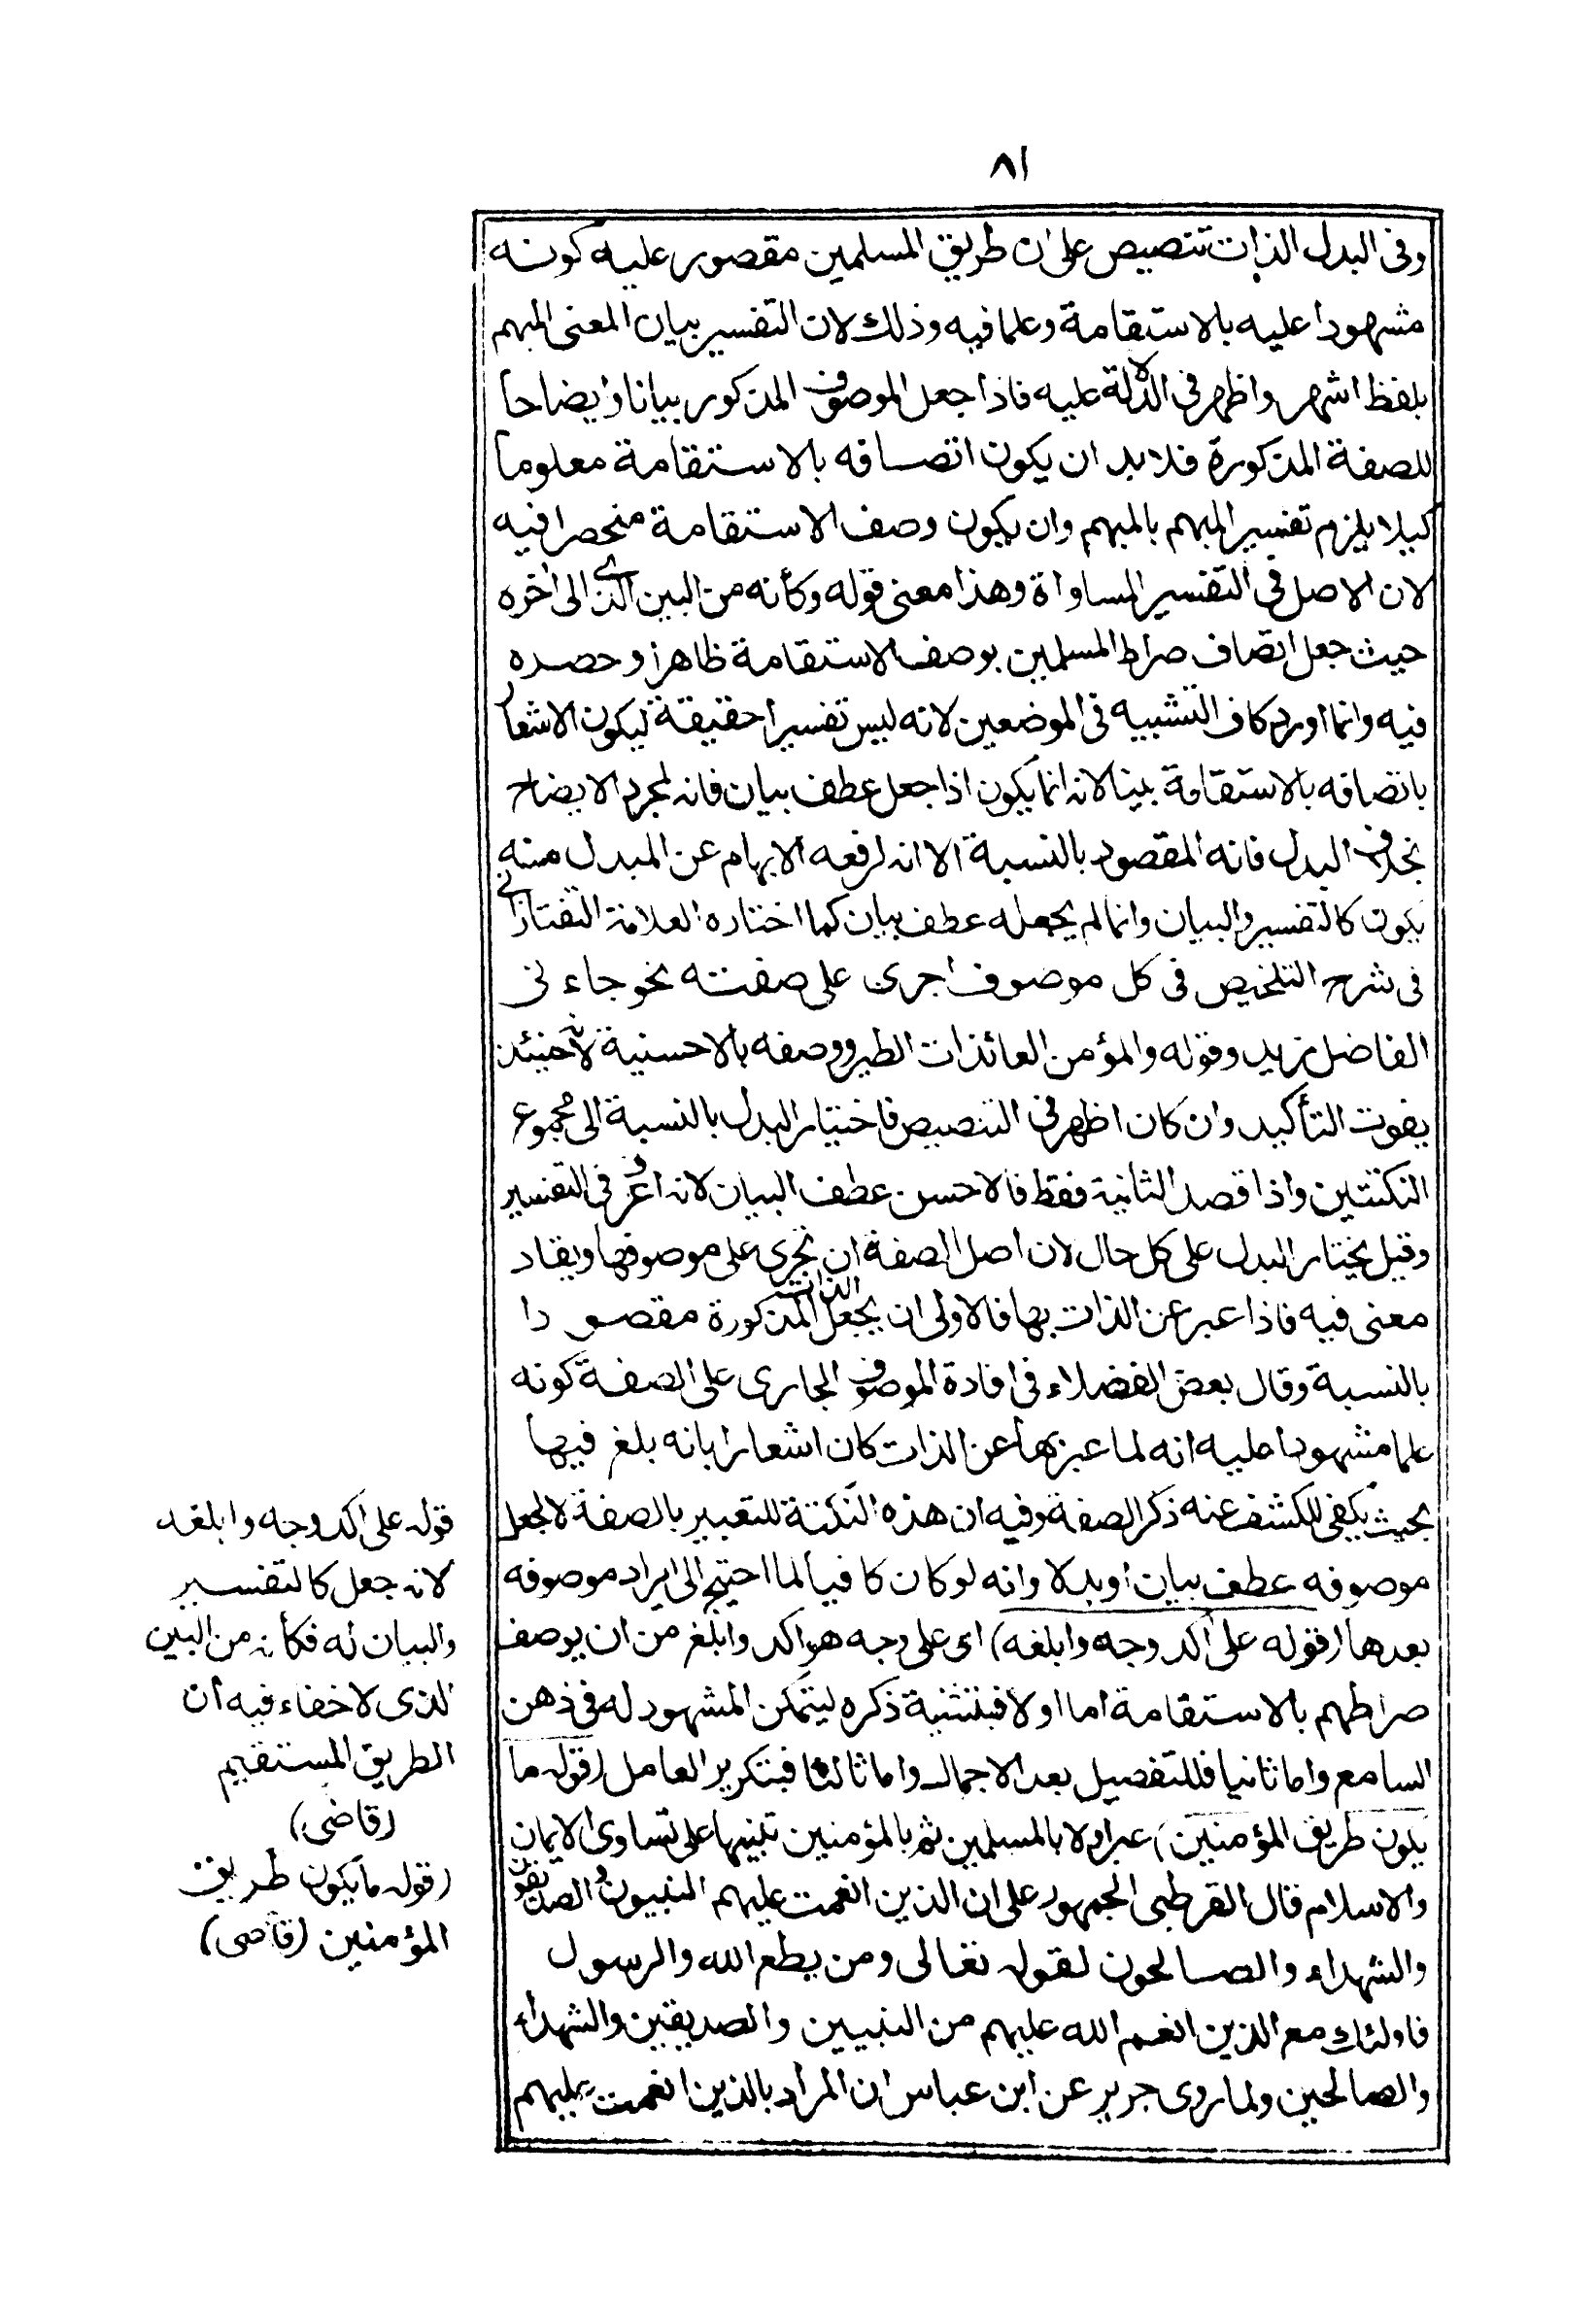 ٨١
وفى البدل الذات تنصيص على ان طريق المسلمين مقصور عليه كونه
مشهودا عليه بالاستقامة وعلما فيه وذلك لان التفسير بيان المعنى المبهم
بلفظ اشهر واظهر فى الدلالة عليه فاذا جعل الموصوف المذكور بيانا وايضاحا
للصفة المذكورة فلا بد ان يكون اتصافه بالاستقامة معلوما
كيلا يلزم تفسير المبهم بالمبهم وان يكون وصف الاستقامة منحصرا فيه
لان الاصل فى التفسير المساواة وهذا معنى قوله وكأنه من البين الذى الى اخره
حيث جعل اتصاف صراط المسلمين بوصف الاستقامة ظاهرا وحصره
فيه وانما اورد كاف التشبيه فى الموضعين لانه ليس تفسيرا حقيقة ليكون الاشعار
باتصافه بالاستقامة بينا لانه انما يكون اذا جعل عطف بيان فانه لمجرد الايضاح
بخلاف البدل فانه المقصود بالنسبة الا انه لرفعه الابهام عن المبدل منه
يكون كالتفسير والبيان وانما لم يجعله عطف بيان كما اختاره العلامة التفتازانى
فى شرح التلخيص فى كل موصوف اجرى على صفته نحو جاءنى
الفاضل زيد وقوله والمؤمن العائذات الطير ووصفه بالاحسنية لانه حينئذ
يفوت التأكيد وان كان اظهر فى التنصيص فاختيار البدل بالنسبة الى مجموع
النكتتين واذا قصد الثانية فقط فالاحسن عطف البيان لانه اعرف فى التفسير
وقيل يختار البدل على كل حال لان اصل الصفة ان تجرى على موصوفها ويفاد
معنى فيه فاذا عبر عن الذات بها فالاولى ان يجعل الذات المذكورة مقصودا
بالنسبة وقال بعض الفضلاء فى افادة الموصوف الجارى على الصفة كونه
علما مشهودا عليه انه لما عبر بها عن الذات كان اشعارا بانه بلغ فيها
بحيث يكفى للكشف عنه ذكر الصفة وفيه ان هذه النكتة للتعبير بالصفة لا لجعل
موصوفه عطف بيان او بدلا وانه لو كان كافيا لما احتيج الى ايراد موصوفه
بعدها (قوله على آكد وجه وابلغه) اى على وجه هو آكد وابلغ من ان يوصف
صراطهم بالاستقامة اما اولا فبتثنية ذكره ليتمكن المشهود له فى ذهن
السامع واما ثانيا فللتفصيل بعد الاجمال واما ثالثا فبتكرير العامل (قوله ما
يكون طريق المؤمنين) عبر اولا بالمسلمين ثم بالمؤمنين تنبيها على تساوى الايمان
والاسلام قال القرطبى الجمهور على ان الذين انعمت عليهم النبيون والصديقون
والشهداء والصالحون لقوله تعالى ومن يطع الله والرسول
فاولئك مع الذين انعم الله عليهم من النبيين والصديقين والشهداء
والصالحين ولما روى جرير عن ابن عباس ان المراد بالذين انعمت عليهم
قوله على آكد وجه وابلغه
لانه جعل كالتفسير
والبيان له فكأنه من البين
الذى لا خفاء فيه ان
الطريق المستقيم
(قاضى)
(قوله ما يكون طريق
المؤمنين (قاضى)